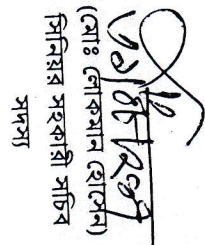 (মোঃ লোকমান হোসেন)
সিনিয়র সহকারী সচিব
সদস্য